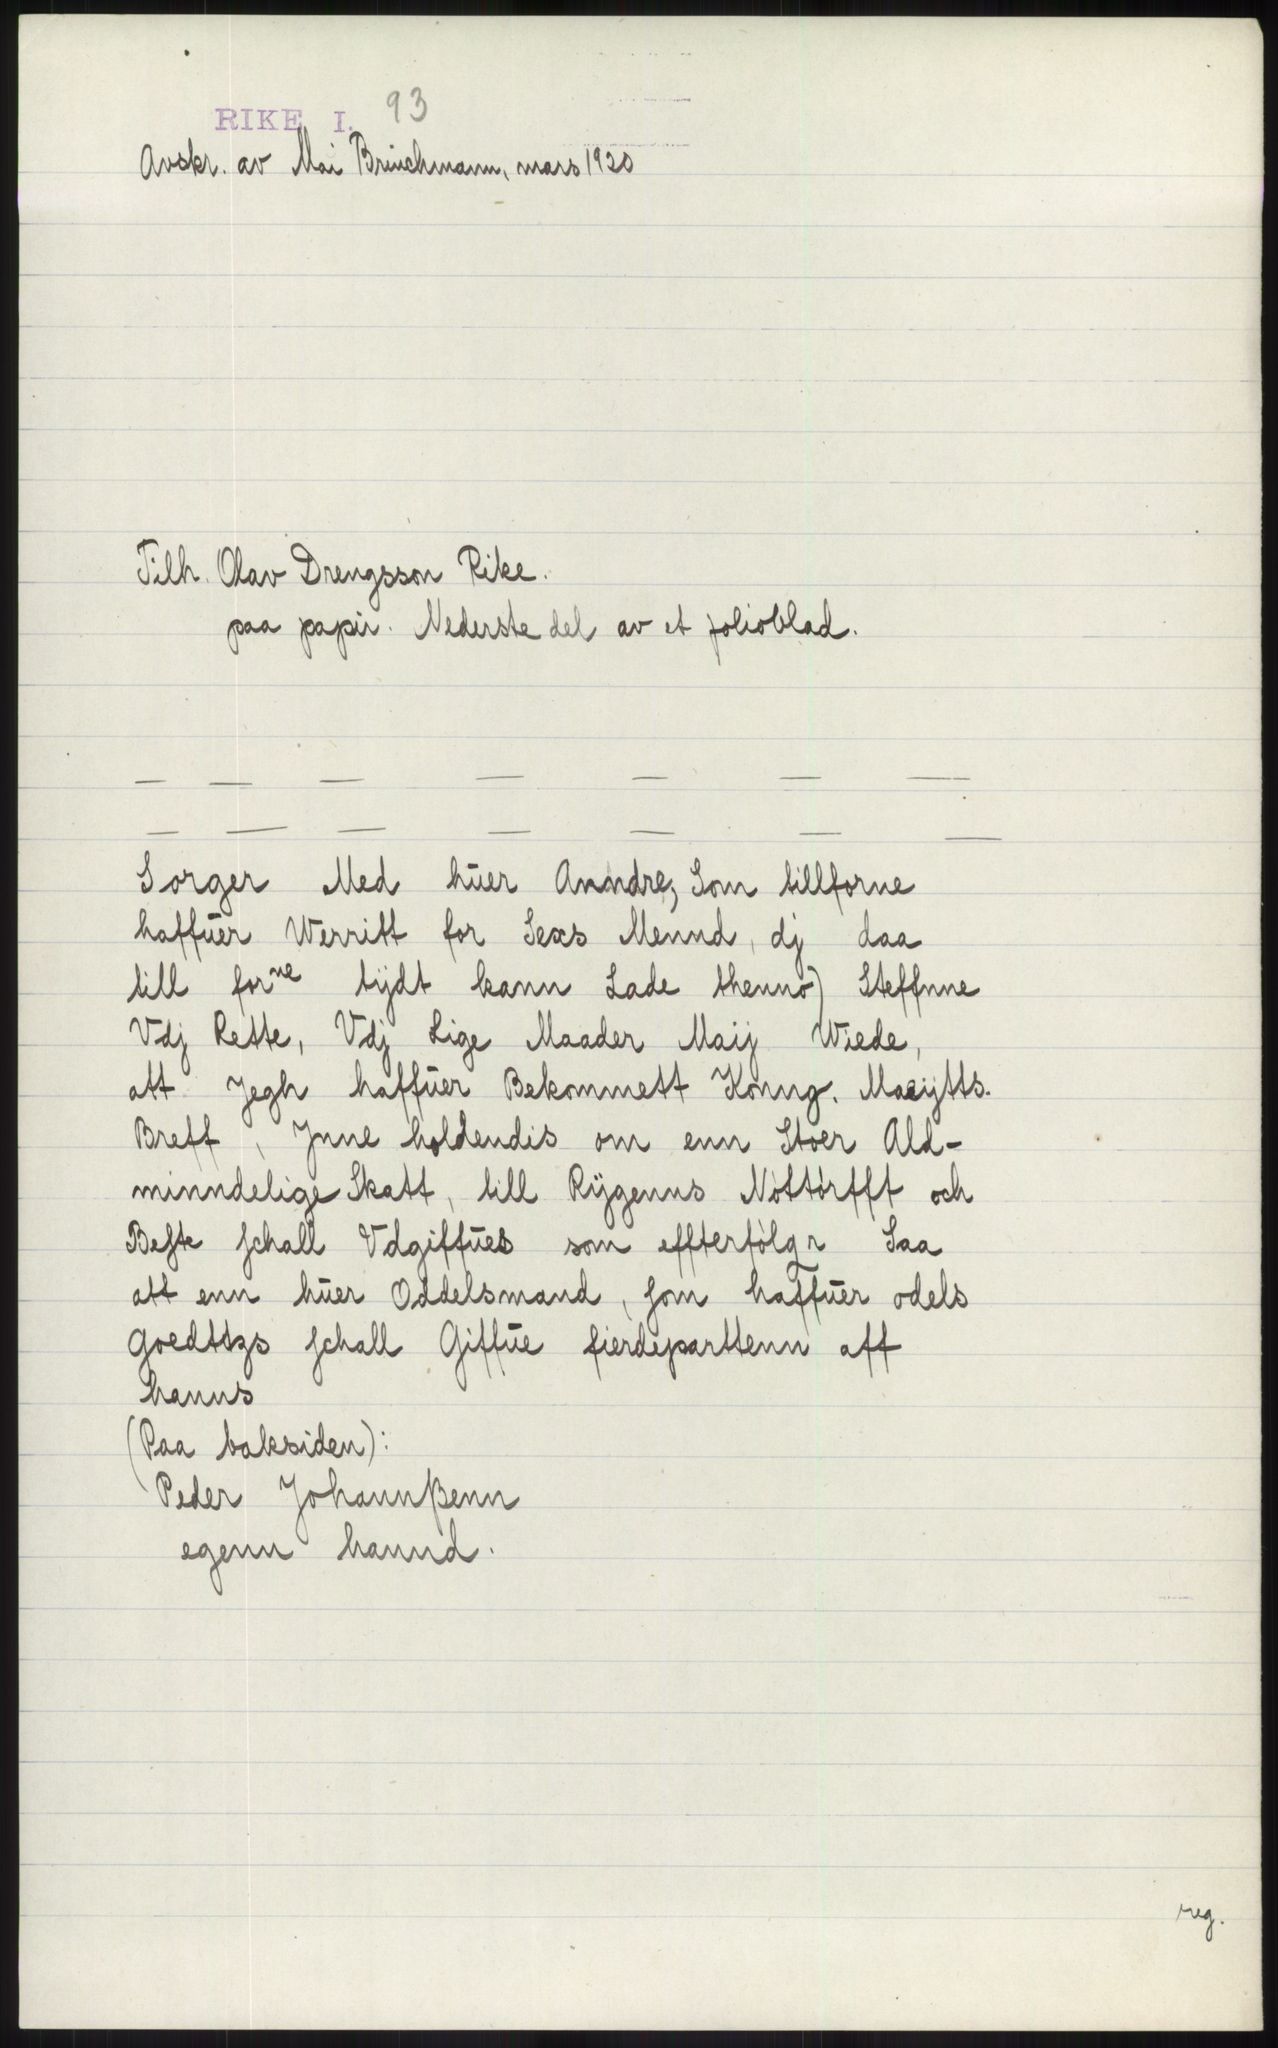 RIKE I. 93
Avskr. av Mai Brinchmann, mars 1920
Tilh. Olav Drengsson Rike.
paa papir. Nederste del av et folioblad.
— — — — — — —
— — — — — — —
Sorger Med huer Anndre, Som tillforne
haffuer Werritt for Sexs Mennd, dj daa
till forne tijdt kann Lade thennö) Steffnne
Vdj Rette, Vdj Lige Maader Maij Wiede,
att Jegh haffuer Bekommett Konng. Maeijtts.
Breff, Jnne holdendis om enn Stoer Ald-
minndelige Skatt, till Rijgenns Nöttörfft och
Beste schall Vdgiffues som effterfölgr Saa
att enn huer Oddelsmand, som haffuer odels
goedttzs schall Giffue fierdeparttenn aff
hanns
(Paa baksiden):
Peder Johannßenn
egenn hannd.
reg.